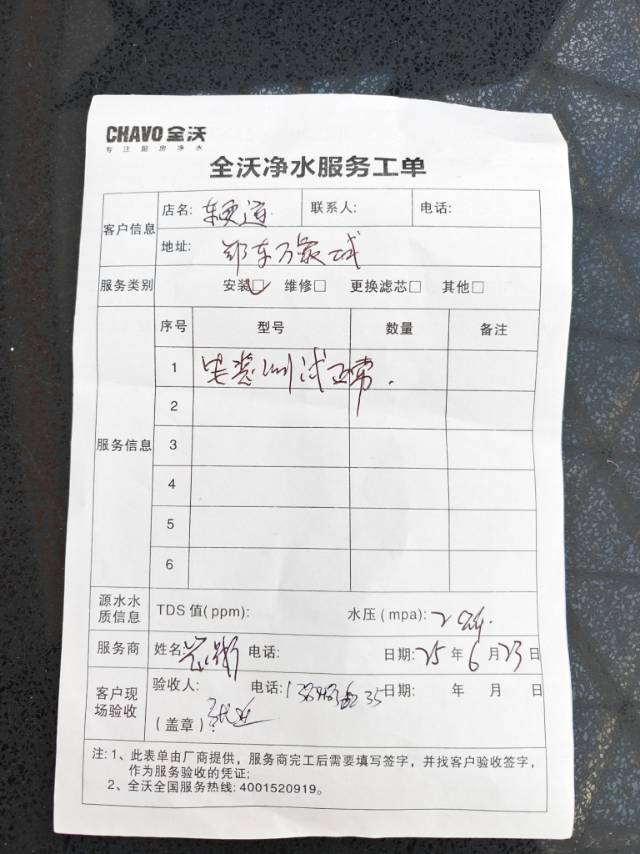 CHAVO 全沃
专注厨房净水
全沃净水服务工单
客户信息
店名: 联系人: 电话:
地址: 郑东万象城
服务类别
安装☑ 维修□ 更换滤芯□ 其他□
服务信息
序号 型号 数量 备注
1 安装测试正常.
2
3
4
5
6
源水水质信息
TDS 值(ppm): 水压(mpa): 2
服务商
姓名: 电话: 日期: 25年6月23日
客户现场验收
验收人: 电话: 日期: 年 月 日
(盖章)
注: 1、此表单由厂商提供，服务商完工后需要填写签字，并找客户验收签字，
作为服务验收的凭证;
2、全沃全国服务热线: 4001520919。